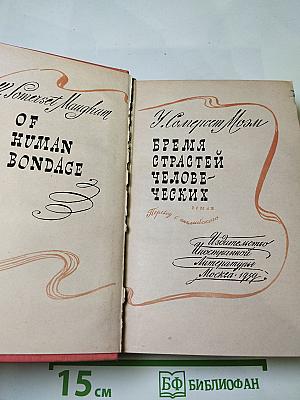 W. Somerset Maugham
OF
HUMAN
BONDAGE
У. Сомерсет Моэм
БРЕМЯ
СТРАСТЕЙ
ЧЕЛОВЕ-
ЧЕСКИХ
роман
Перевод с английского
Издательство
Иностранной
Литературы
Москва · 1959
15 см
БФ БИБЛИОФАН